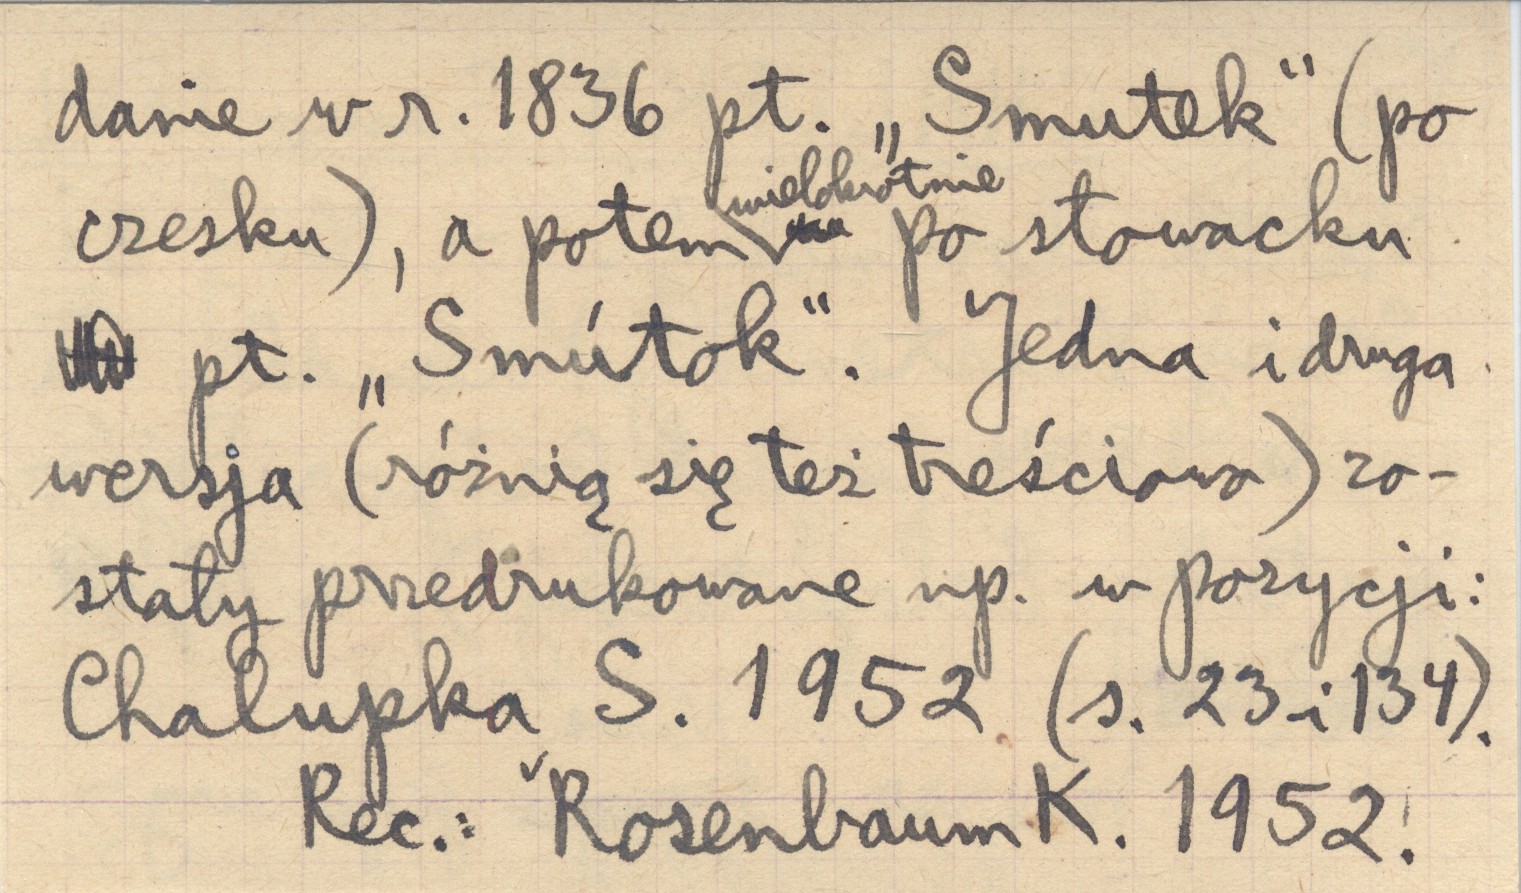 danie w r. 1836 pt. „Smutek“ (po
czesku), a potem wielokrotnie po słowacku
pt. „Smútok“. Jedna i druga
wersja (różnią się też treściowo) zo-
stały przedrukowane np. w pozycji:
Chalupka S. 1952 (s. 23 i 134).
Rec.: Rosenbaum K. 1952.